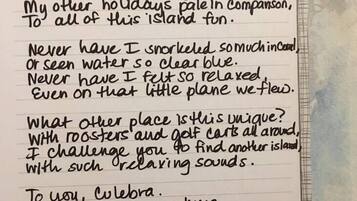 My other holidays pale in comparison,
To all of this island fun.
Never have I snorkeled so much in
or seen water so clear blue.
Never have I felt so relaxed,
Even on that little plane we flew.
What other place is this unique?
With roosters and golf carts all around,
I challenge you to find another island,
with such relaxing sounds.
To you, Culebra.